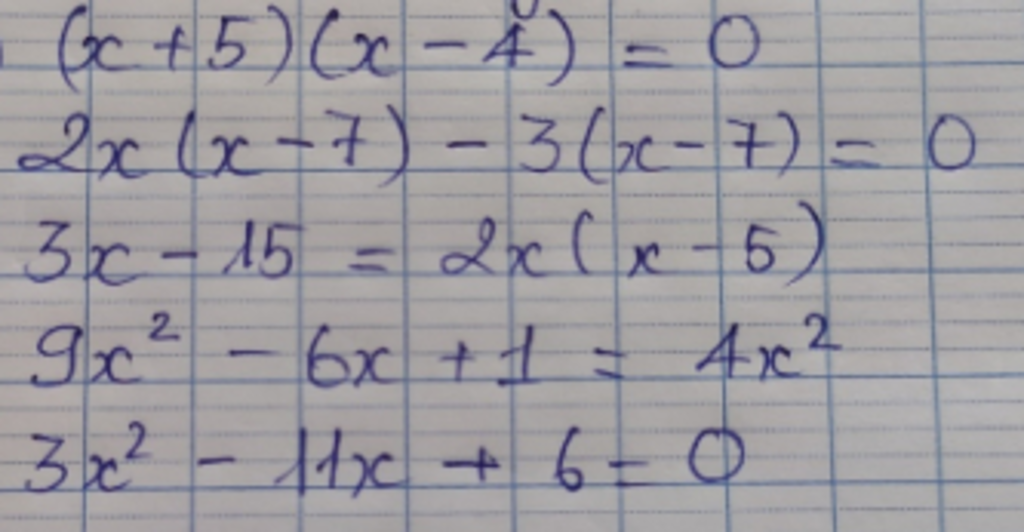 (x + 5)(x - 4) = 0
2x(x - 7) - 3(x - 7) = 0
3x - 15 = 2x(x - 5)
9x² - 6x + 1 = 4x²
3x² - 11x + 6 = 0